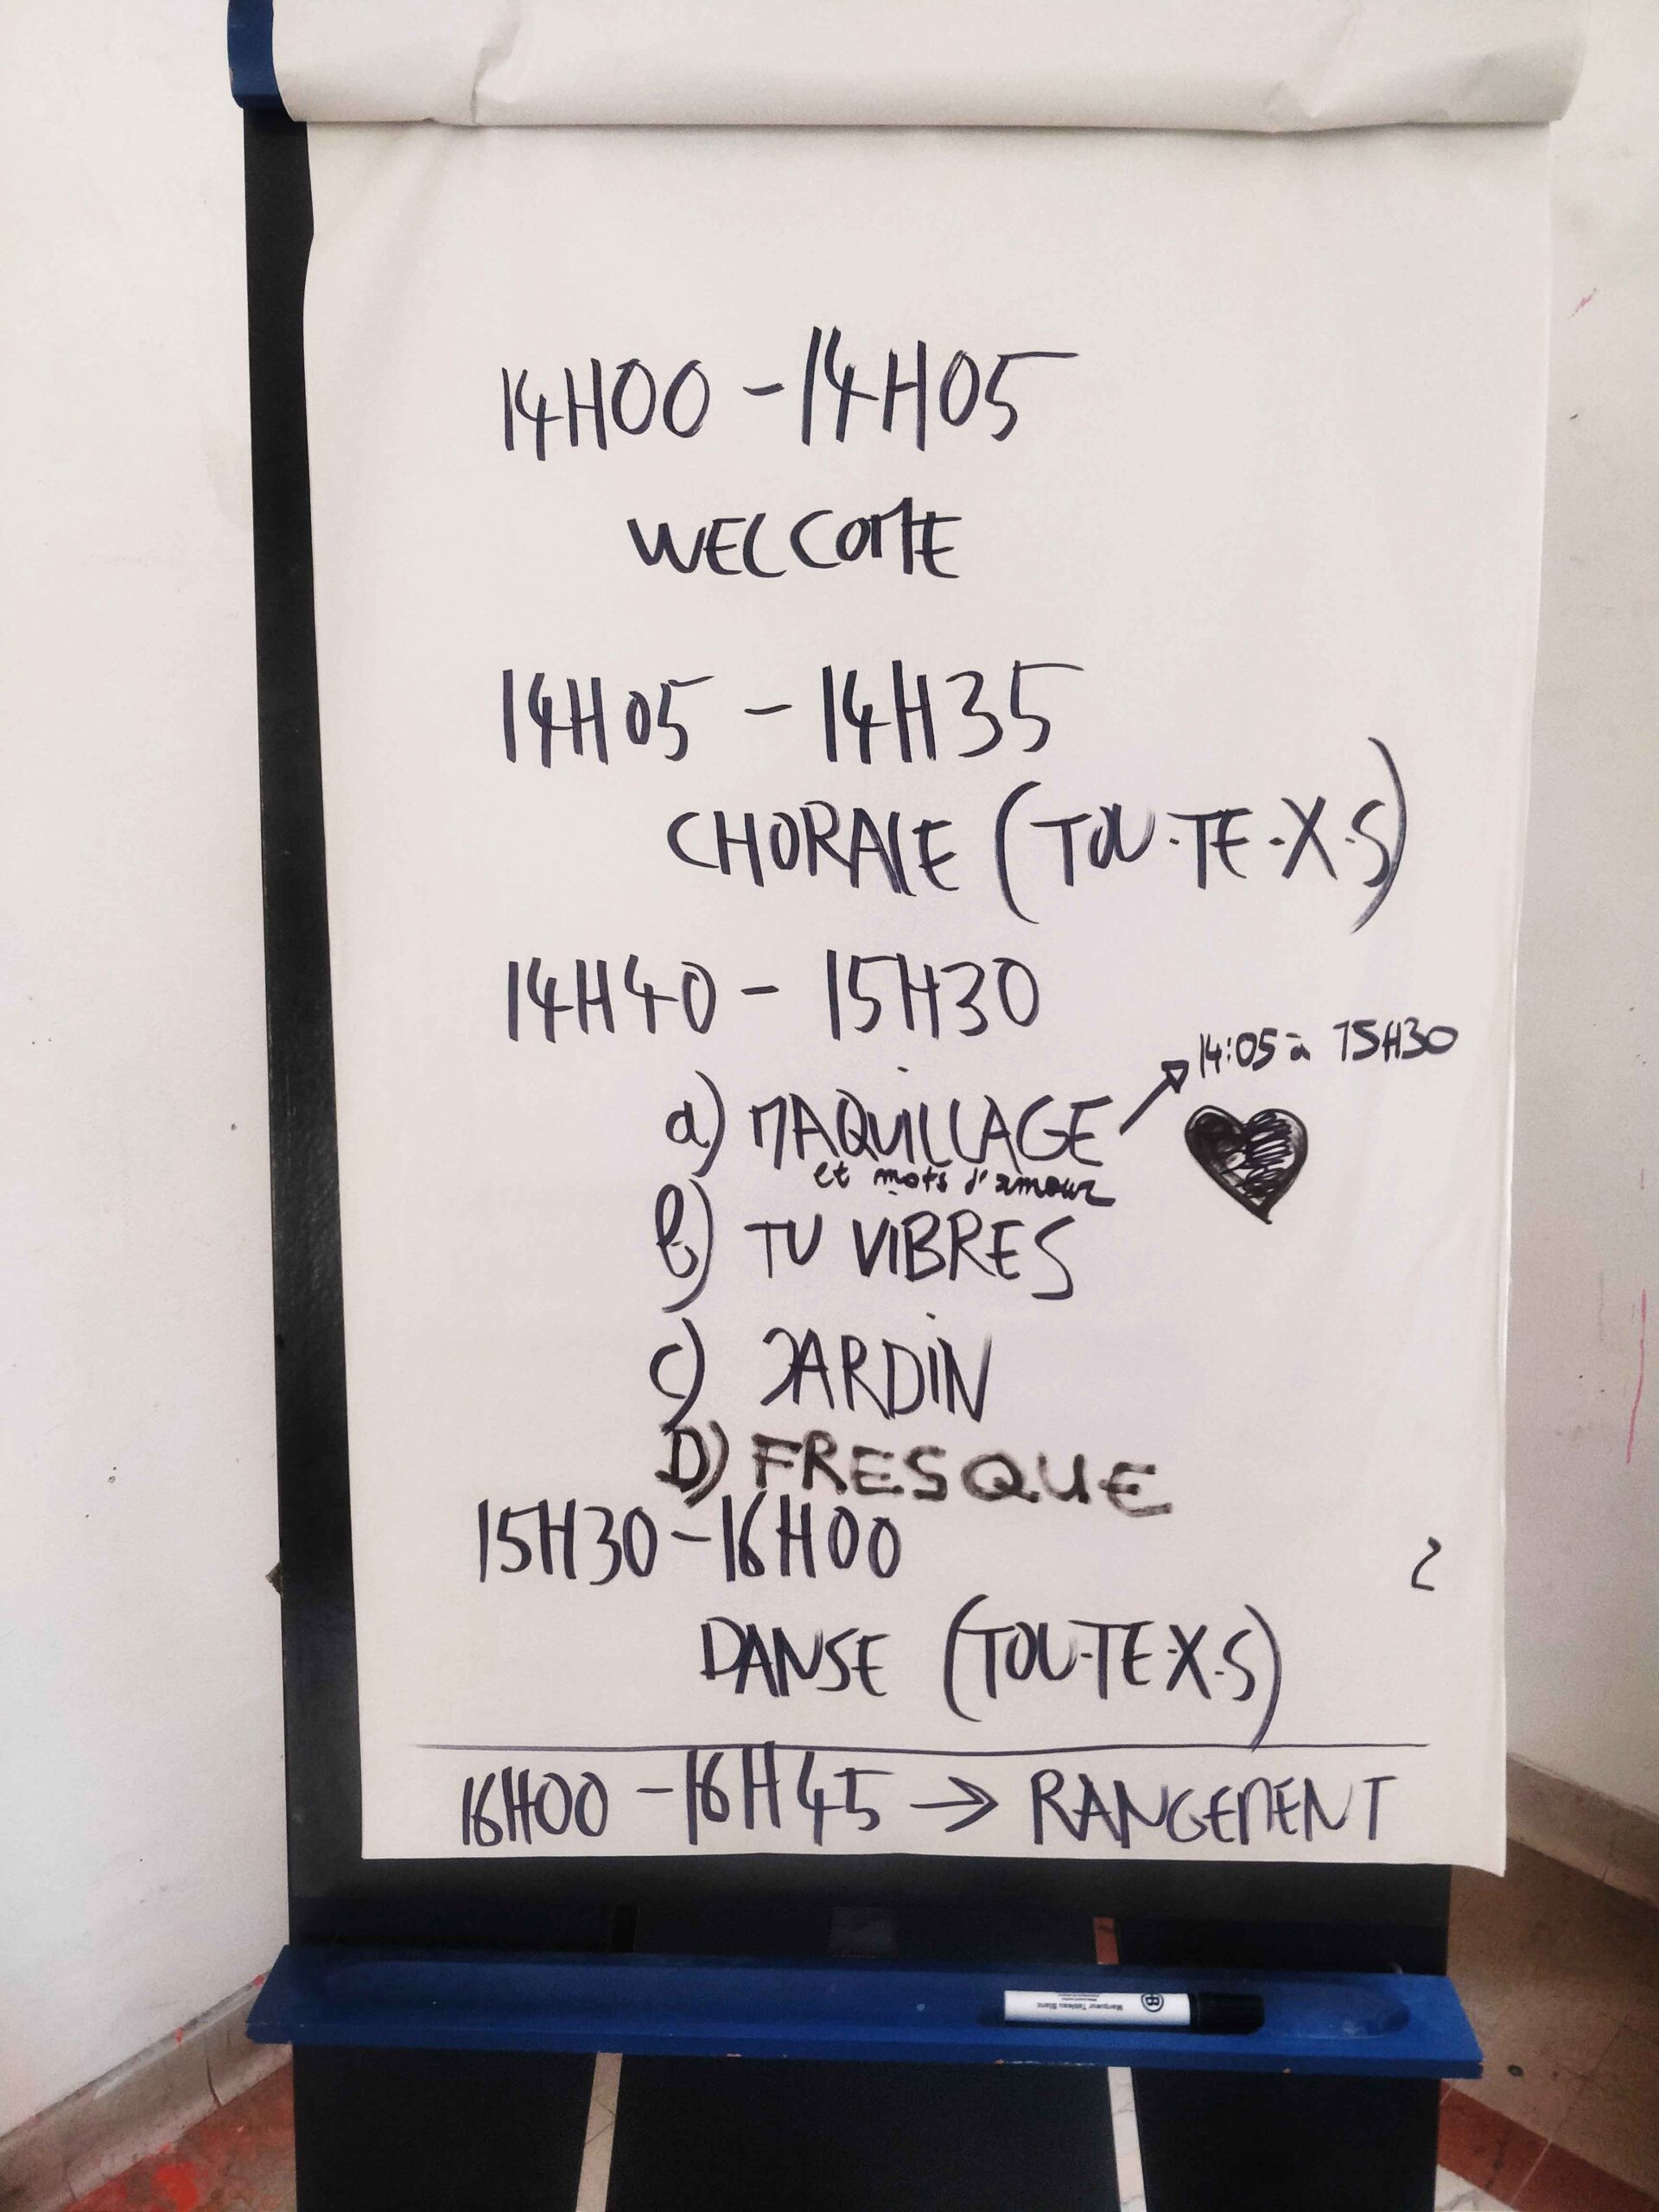 14H00 - 14H05
WELCOME
14H05 - 14H35
CHORALE (TOU·TE·X·S)
14H40 - 15H30
14:05 à 15H30
a) MAQUILLAGE
et mots d'amour
b) TU VIBRES
c) JARDIN
D) FRESQUE
15H30 - 16H00
DANSE (TOU·TE·X·S)
16H00 - 16H45 → RANGEMENT
Marqueur Tableau Blanc